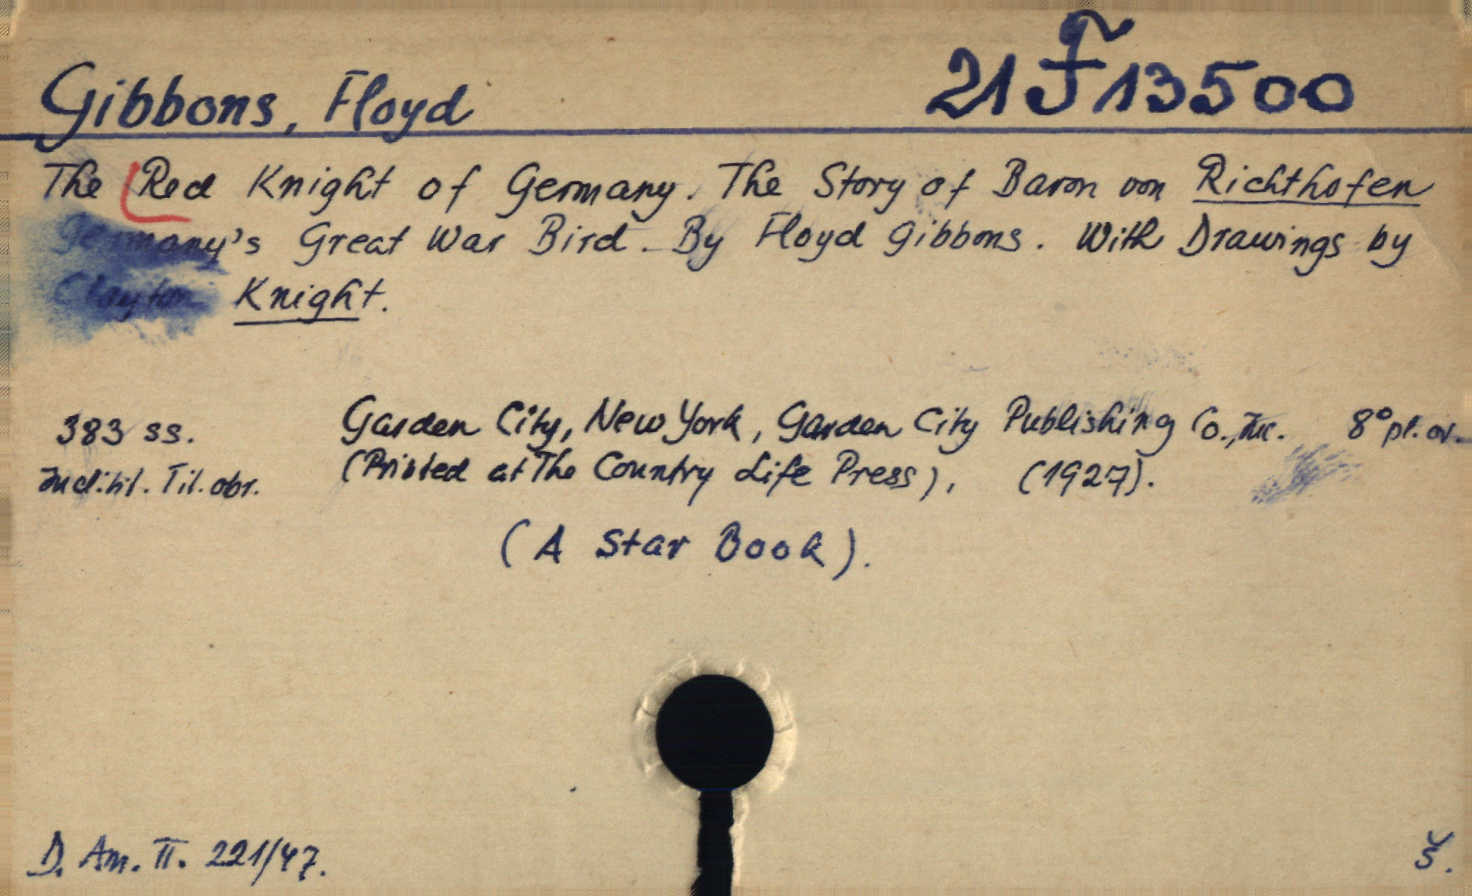 Gibbons, Floyd
21 F 13500
The Red Knight of Germany. The Story of Baron von Richthofen
Germany's Great War Bird. By Floyd Gibbons. With Drawings by
Clayton Knight.
383 ss. Garden City, New York, Garden City Publishing Co., Inc. 8° pl. ov.
Incl. tit. Til. obr. (Printed at The Country Life Press), (1927).
(A Star Book).
D. Am. II. 221/47.
Š.